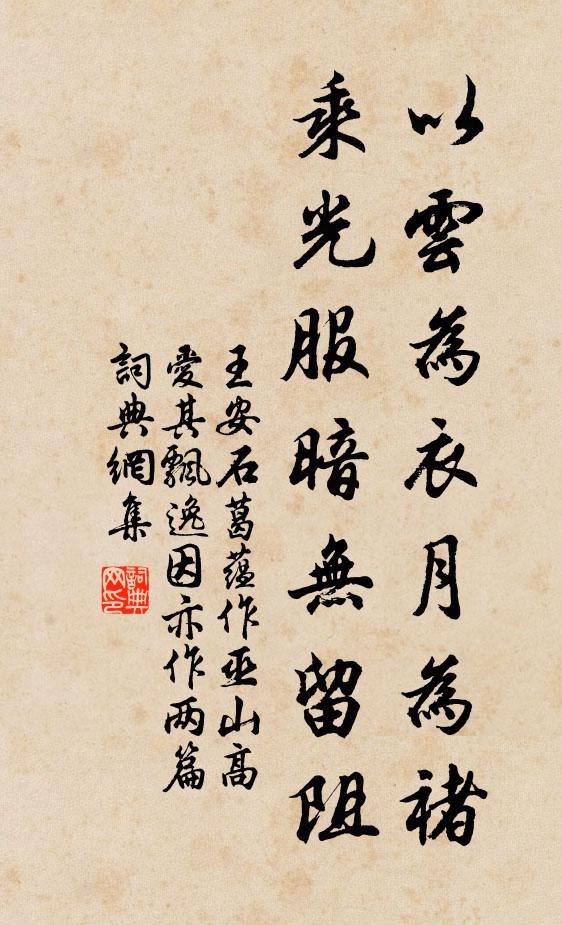 以雲為衣月為褚
乘光服暗無留阻
王安石葛蘊作巫山高
愛其飄逸因亦作两篇
詞典網集
詞典
网印